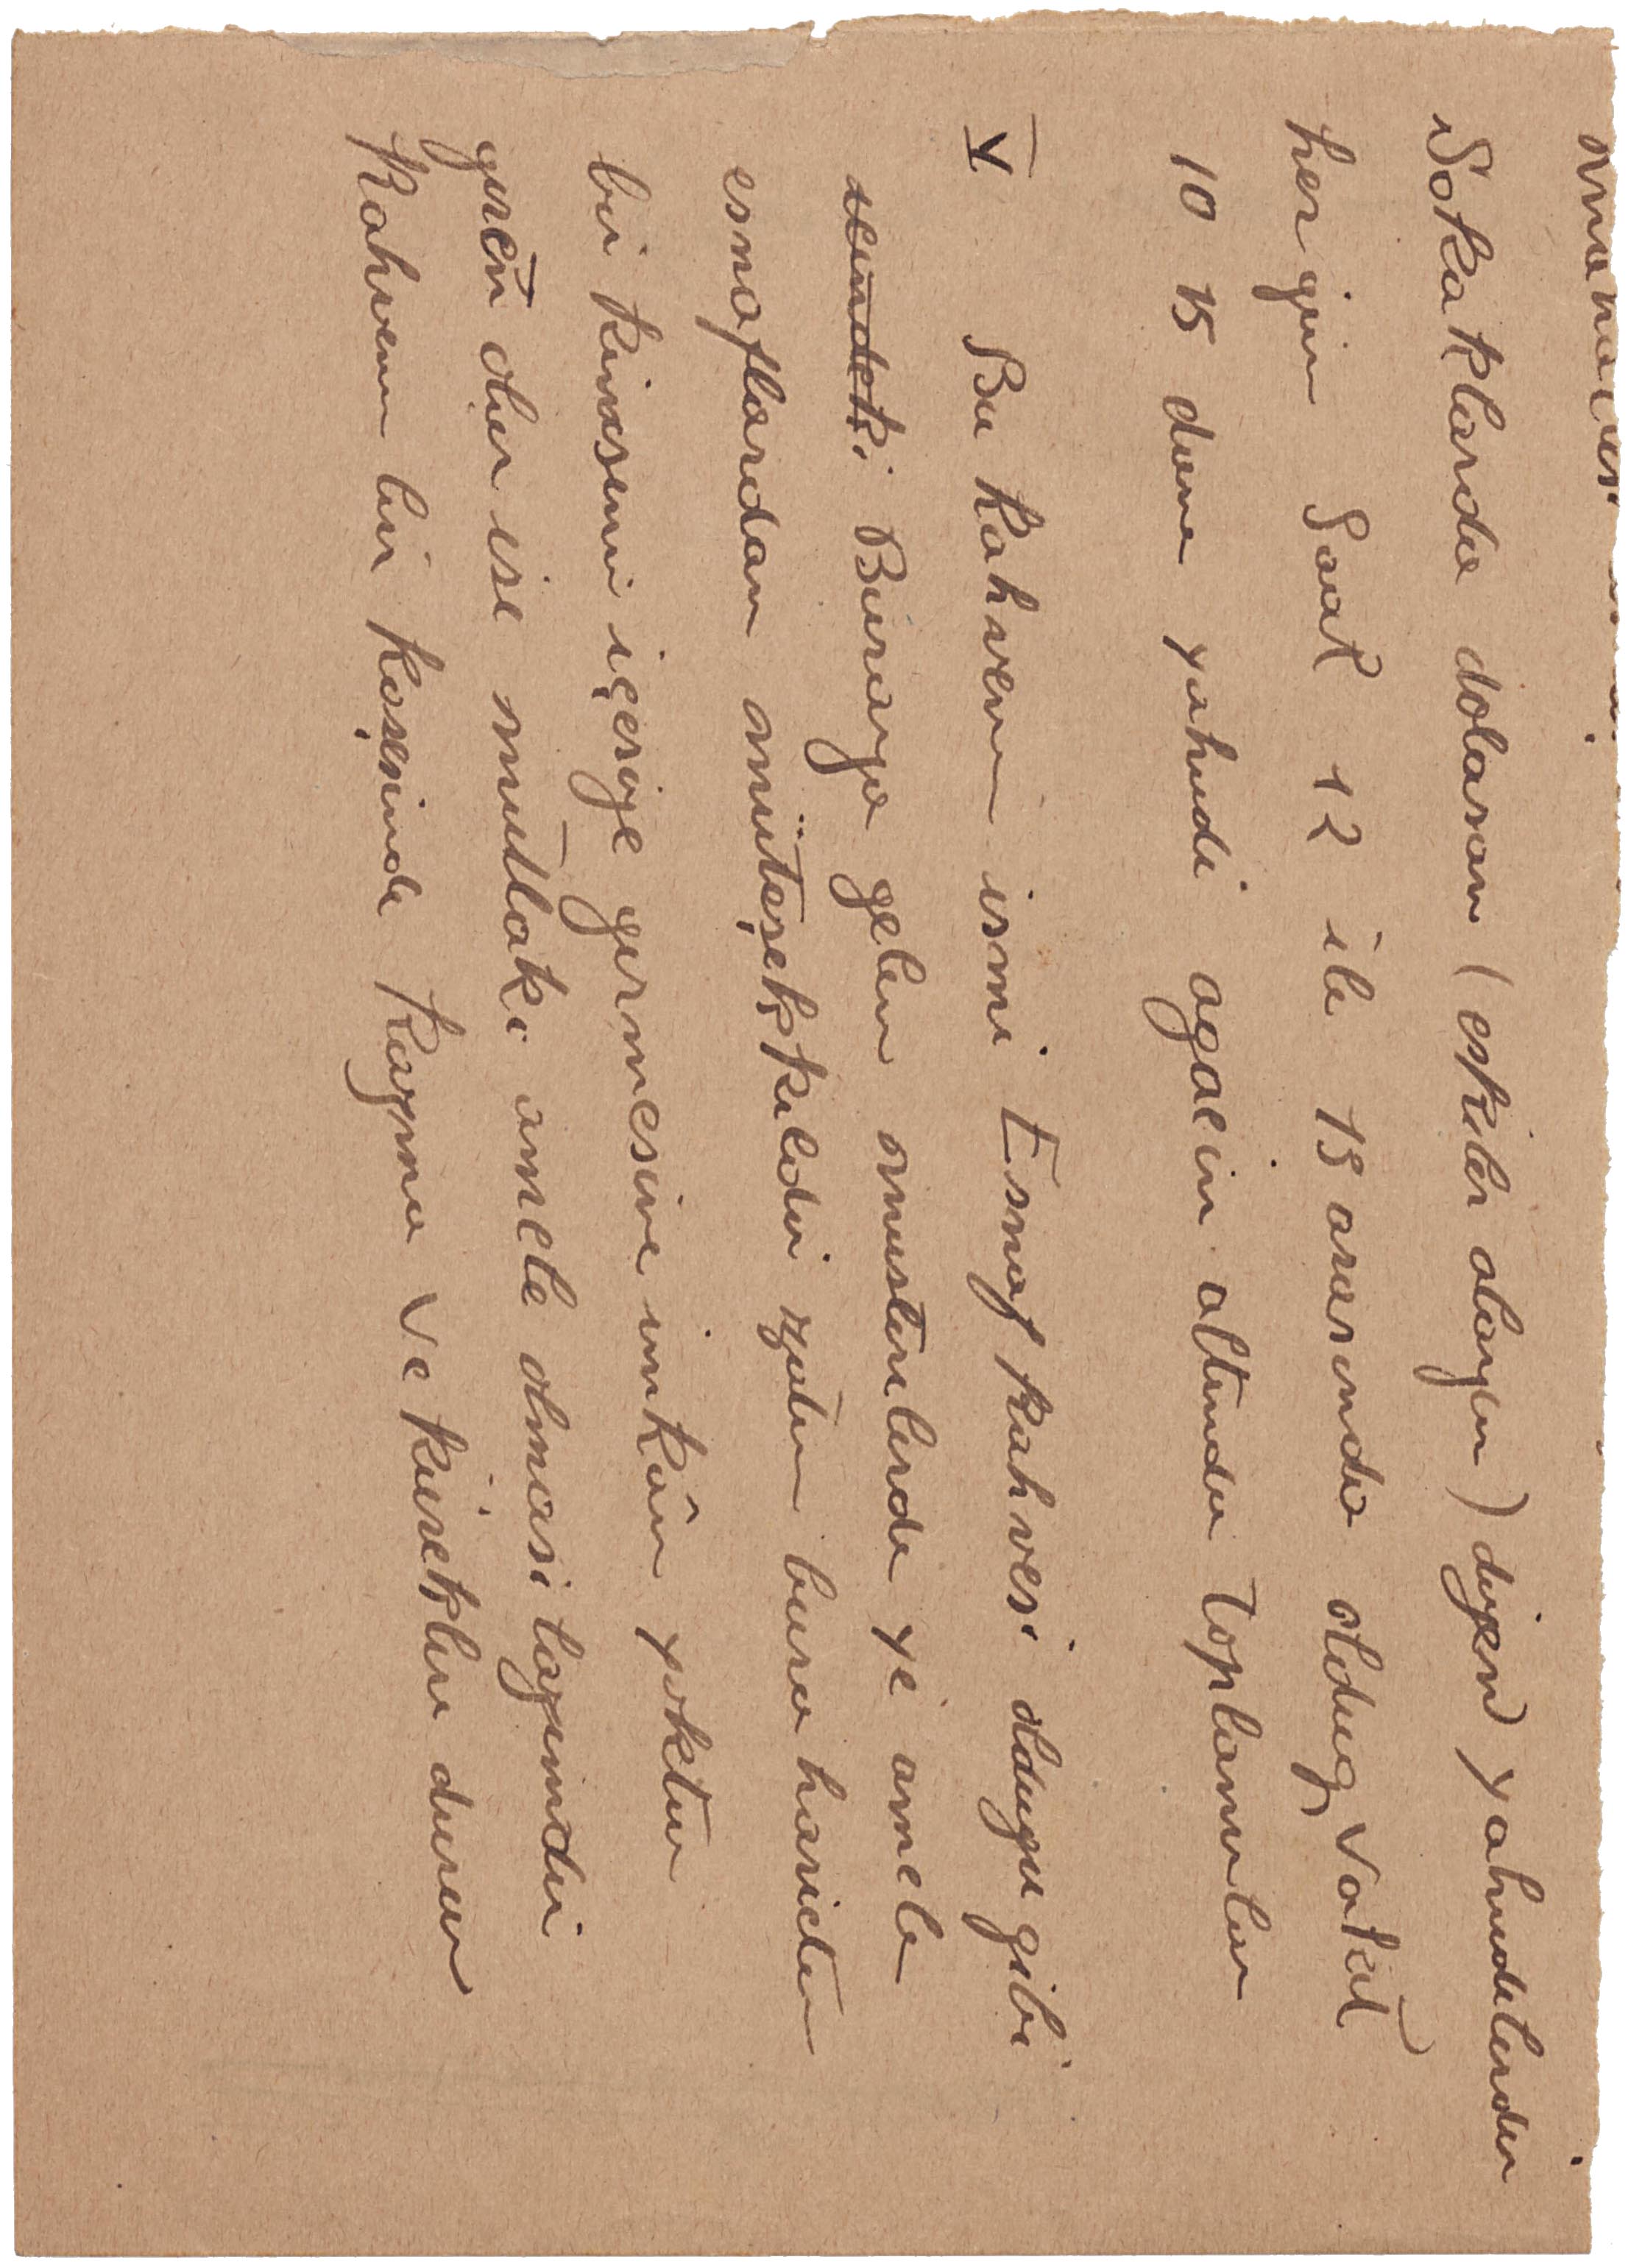 Sokaklarda dolasan (eskiler alayen) diyen yahudilerden
hergün Saat 12 ile 13 arasında oldug vakıt
10 15 dane yahudi agacin altında toplanırlar
V Bu kahvenin ismi Esnaf kahvesi oldugu gibi
Buraya gelen müsterilerde ye amele
esnaflardan müteşekkildir zaten bura haricten
bir kimsenin içeriye girmesine imkân yoktur
giren olur ise mutlaki amele olması lazımdır
Kahvenin bir kosesinde Kazma Ve kürekler durur